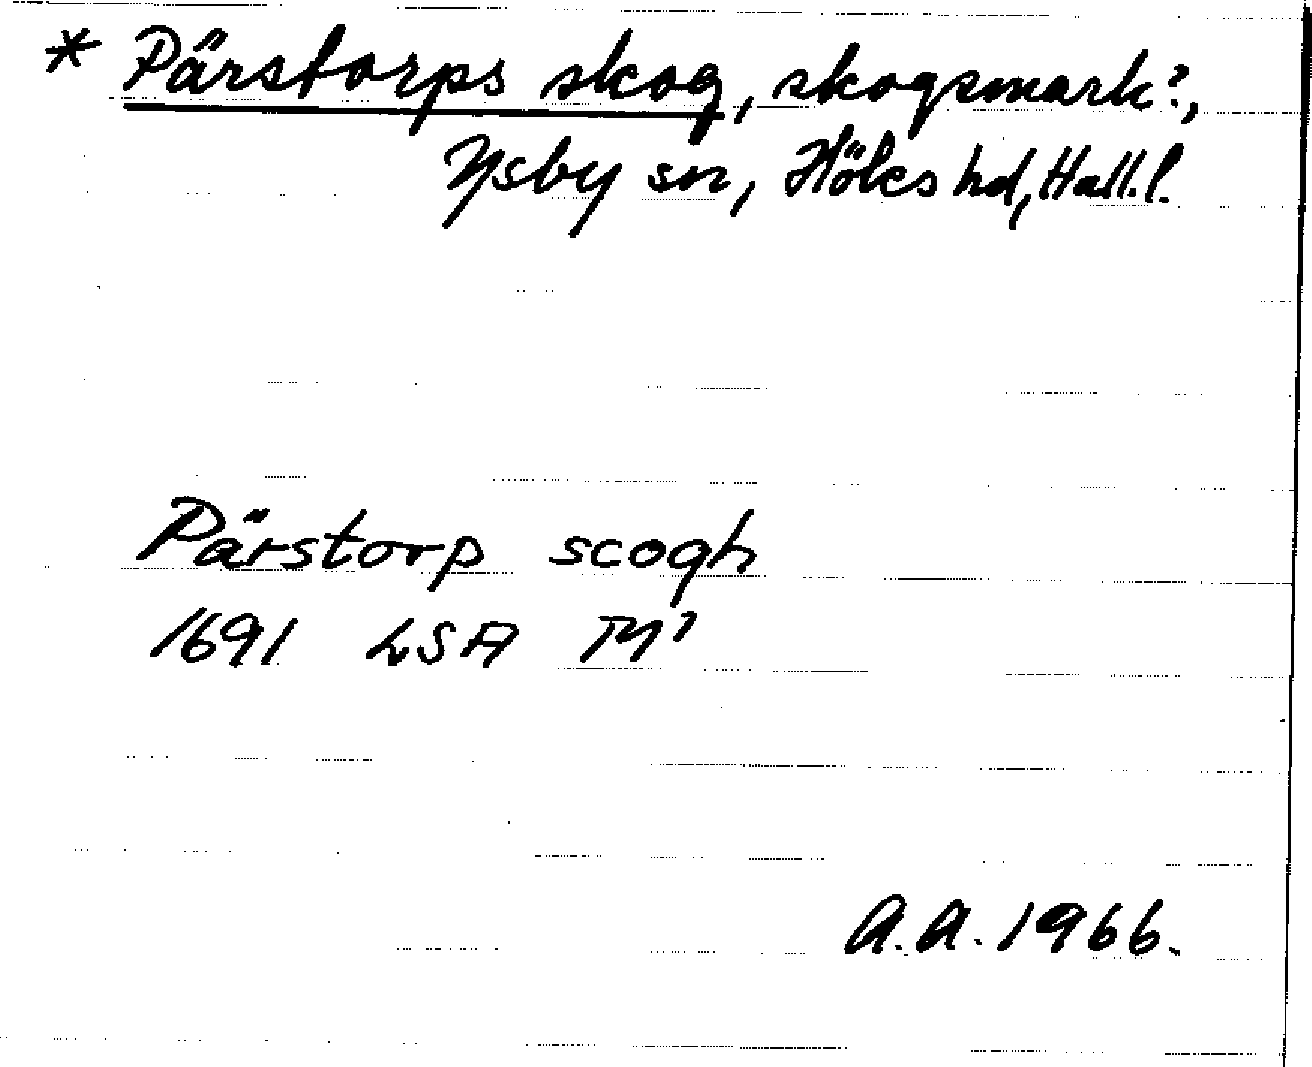 * Pärstorps skog, skogsmark?,
Ysby sn, Höks hd, Hall.l.
Pärstorp scogh
1691 LSA M¹
A.A. 1966.